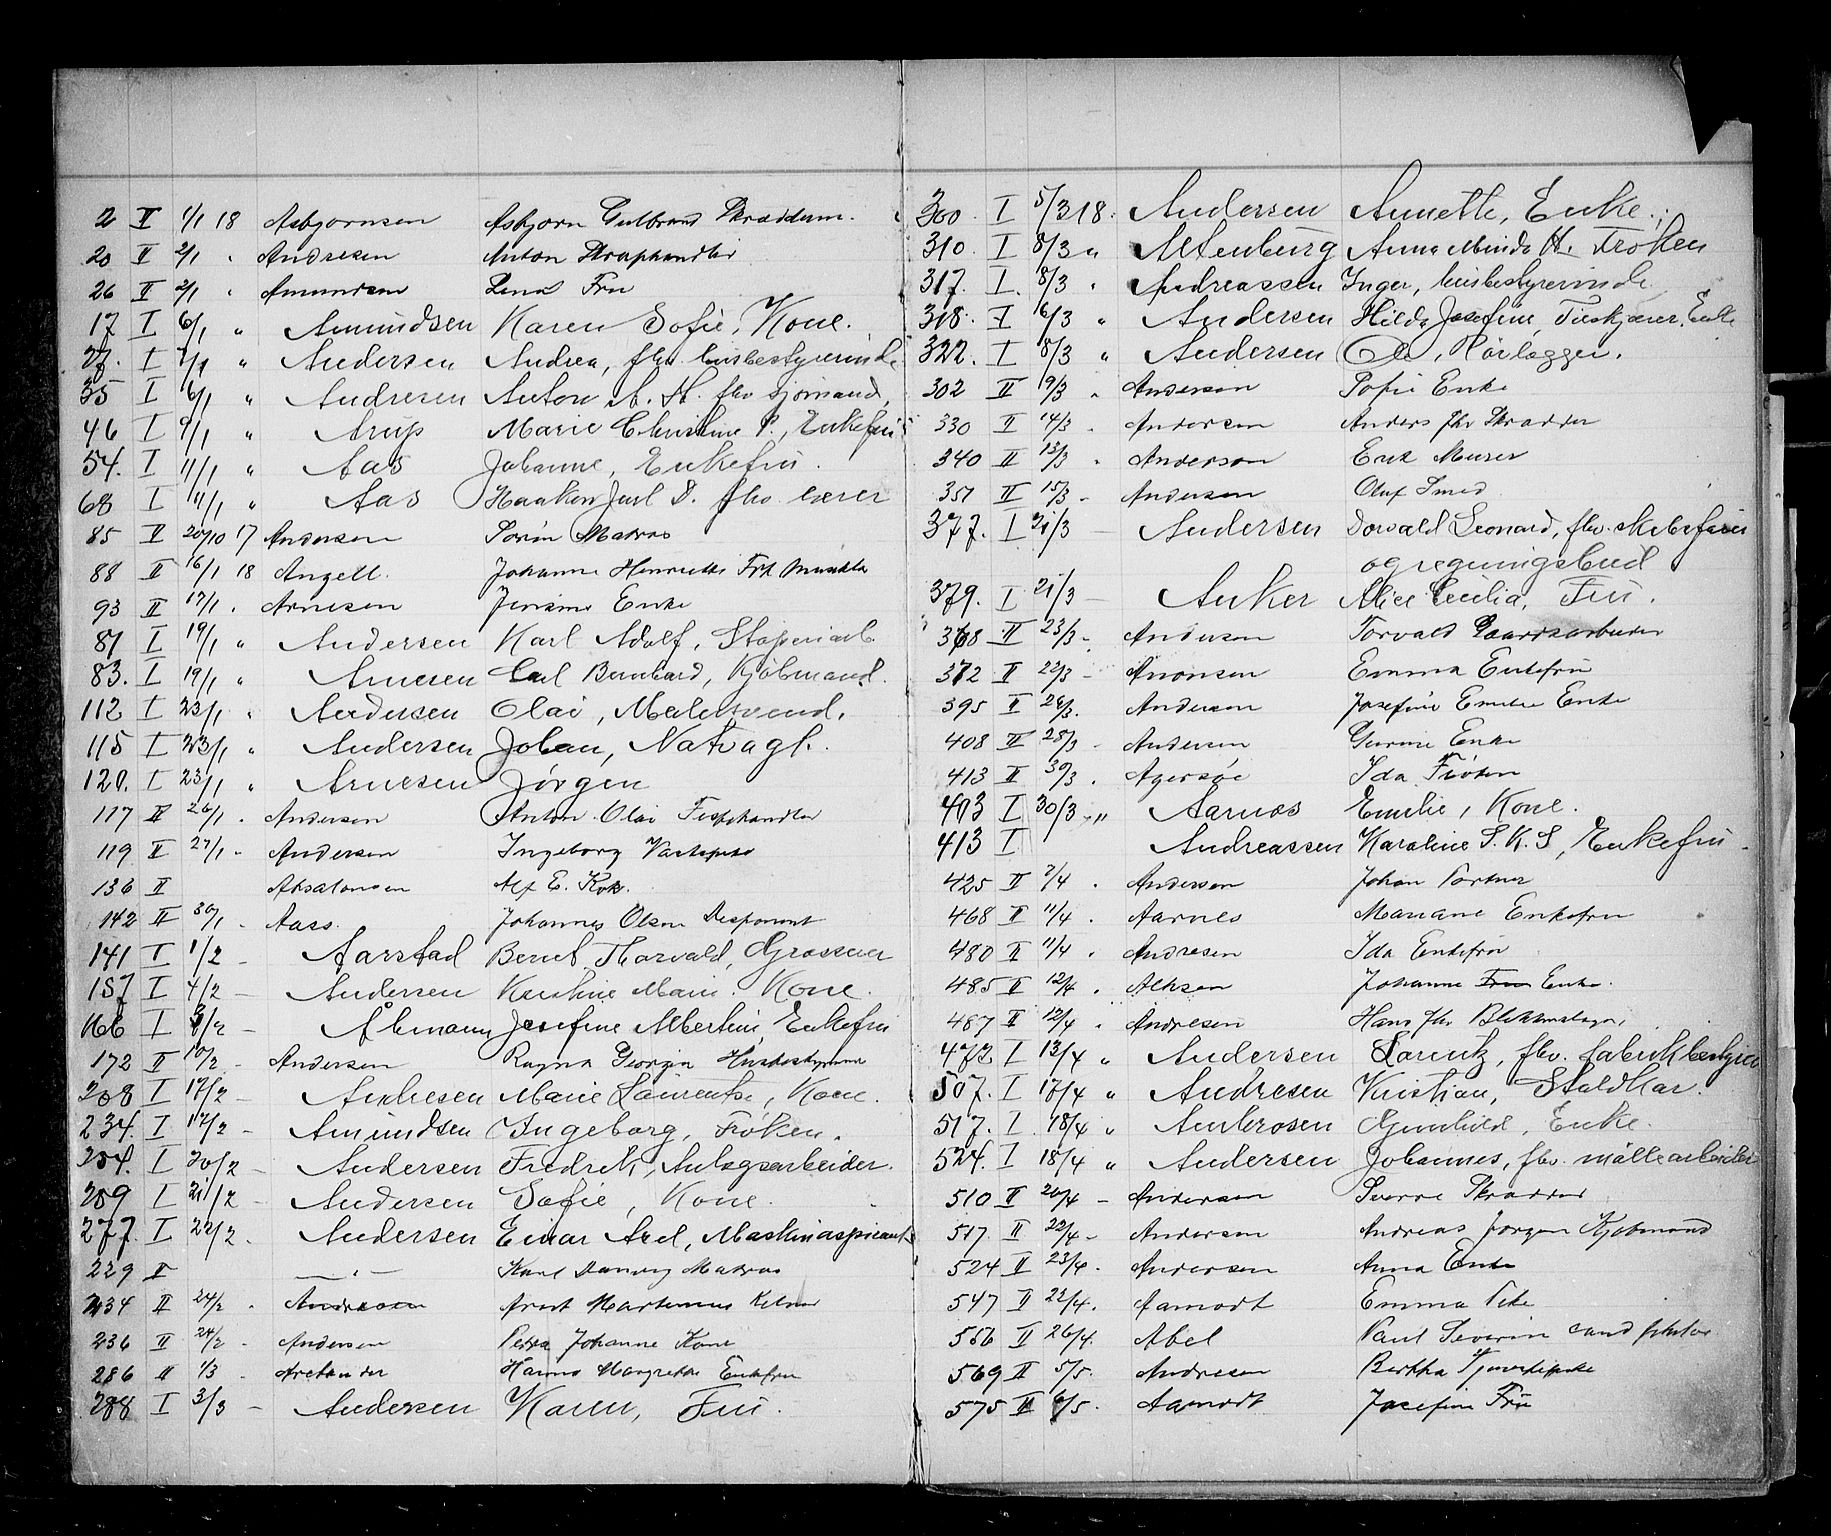 2 II 1/1 18 Asbjørnsen Asbjørn Gulbrand Skræddersv.
20 II 2/1 " Andresen Anton Skraphandler
26 II 2/1 " Amundsen Lina Fru
17 I 6/1 " Amundsen Karen Sofie, Kone.
27. I 7/1 " Andersen Andrea, fhv. husbestyrerinde
35 I 6/1 " Andresen Anton A. H. fhv sjömand,
46 I 9/1 " Arup Marie Christine P., Enkefru
54. I 11/1 " Aas Johanne, Enkefru.
68 I 11/1 " Aas Haakon Jarl D. fhv. lærer
85 II 20/10 17 Andersen Sörin Matros
88 II 16/1 18 Angell Johanne Henriette Frk
93 II 17/1 . Arnesen Jensine Enke
81 I 19/1 " Andersen Karl Adolf, Stöperiarb.
83. I 19/1 " Arnesen Carl Bernhard, Kjöbmand.
112 I 23/1 " Andersen Olai, Malersvend.
115 I 23/1 " Andersen Johan, Natvagt.
120. I 23/1 " Arnesen Jörgen
117 II 26/1 . Andersen Anton Olai Fiskehandler
119 II 27/1 - Andersen Ingeborg
136 II Absalonsen Alf E. Kok.
142 II 30/1 - Aass Johannes Olsen Disponent
141 I 1/2 - Aarstad Bernt Thorvald, Grosserer
157 I 4/2 - Andersen Kristine Marie. Kone.
166 I 8/2 - Åbmann Josefine Albertine, Enkefru
172 II 10/2 - Andersen Ragna Georgia Husbestyrerinne
208 I 17/2 - Andresen Marie Laurentse, Kone.
234. I 17/2 - Amundsen Ingeborg, Fröken.
254. I 20/2 - Andersen Fredrik, Anlægsarbeider.
259 I 21/2 - Andersen Sofie, Kone.
277. I 22/2 - Andersen Einar Axel, Maskinaspirant
229 II — " — Karl Matros
234 II 24/2 - Andresen Arnt Martinius Kelner
236 II 24/2 - Andersen Petra Johanne Kone
286 II 1/3 - Arctander Hanna Margrethe Enkefru
288 I 3/3 - Andersen Karen, Fru.
300. I 5/3 18. Andersen Annette, Enke.
310 I 8/3 " Altenburg Anna Minda H. Fröken
317. I. 8/3 " Andreassen Inger, husbestyrerinde
318. I 6/3 " Andersen Hilda Josefine, Enke
322. I 8/3 " Andersen Ole, Rörlægger.
302 II 9/3 " Andersen Sofie Enke
330 II 14/3 - Andersen Anders fhv Skrædder
340 II 13/3 - Anderson Erik Murer
351 II 15/3 - Andersen Oluf Smed
377. I 21/3 - Andersen Dorvald Leonard, fhv. skibsförer
og regningsbud
379. I 21/3 - Anker Alice Cecilia, Fru.
368 II 23/3 - Andersen Torvald Gaardsarbeider
372 II 22/3 - Aronsen Emma Enkefru
395 II 26/3. Andersen Josefine Emilie Enke
408 II 28/3 - Andersen Gurine Enke
413 II 30/3 . Agersöe Ida Fröken
403 I 30/3 " Aarnæs Emilie, Kone.
413 I Andreassen Karoline S. K. S, Enkefru
425 II 2/4 . Andersen Johan Portner
468 II 11/4 . Aarnes Mariane Enkefru
480 II 11/4 . Andresen Ida Enkefru
485 II 12/4 . Alksen Johanne Fru Enke.
487 II 12/4 . Andresen Hans fhv
472 I 13/4 " Andersen Lorentz, fhv. fabrikbestyrer
507. I 17/4 " Andresen Kristian, Staldkar.
517. I 18/4 " Ambrosen Gunhild, Enke.
524. I 18/4 " Andersen Johannes, fhv. möllearbeider
510 II 20/4 - Andersen Sverre Skrædder
517. II 22/4 - Andersen Andreas Jørgen Kjøbmand
524 II 23/4 . Andersen Anna Enke
547 II 22/4. Aamodt Emma Pike
556 II 26/4. Abel Paul Severin cand philos
569 II 5/5. Andresen Bertha Tjenestepike
575 II 6/5. Aamodt Josefine Fru